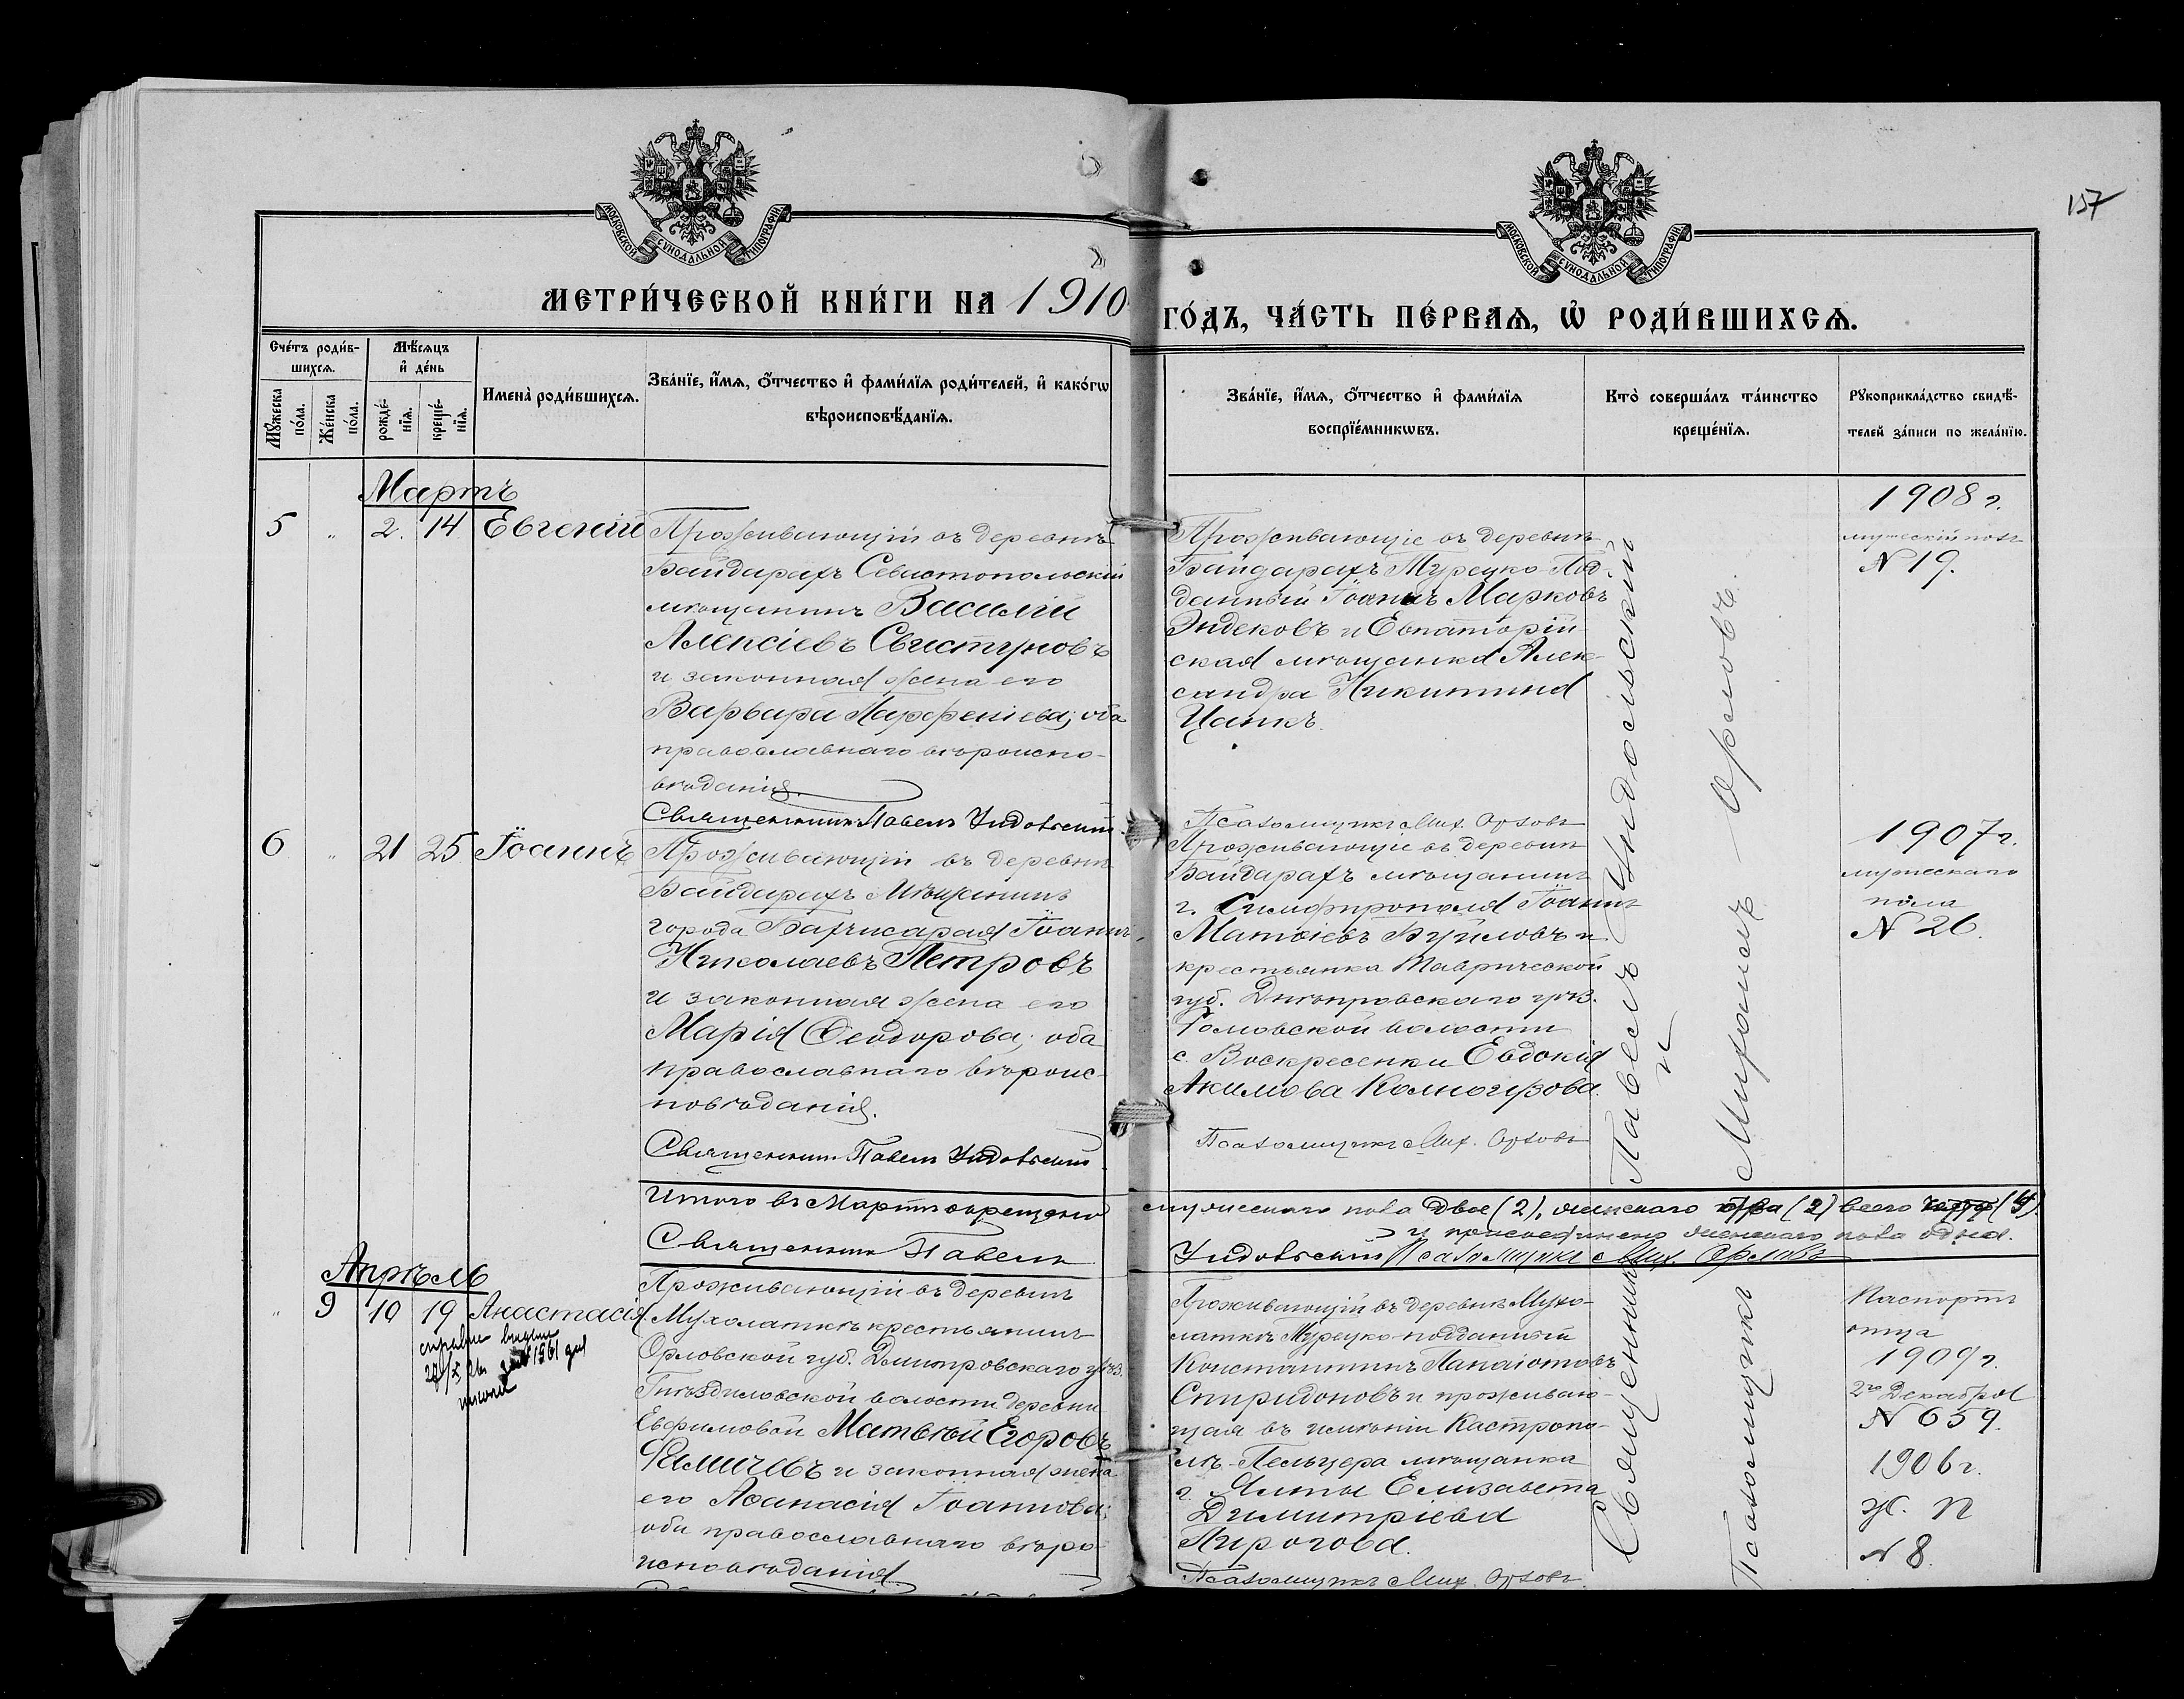 157
МОСКОВСКОЙ СѴНОДАЛЬНОЙ ТИПОГРАФІИ
МОСКОВСКОЙ СѴНОДАЛЬНОЙ ТИПОГРАФІИ
МЕТРИ́ЧЕСКОЙ КНИ́ГИ НА 1910
ГО́ДЪ, ЧА́СТЬ ПЕ́РВАѦ, Ѡ҆ РОДИ́ВШИХСѦ.
Сче́тъ роди́в-
шихсѧ.
Мꙋ́жеска по́ла.
Же́нска по́ла.
Мѣ́сѧцъ
и҆ де́нь
рожде́-нїѧ.
креще́-нїѧ.
Имена̀ роди́вшихсѧ.
Зва́нїе, и҆́мѧ, ѻ҆́тчество и҆ фами́лїѧ роди́телей, и҆ како́гѡ
вѣроисповѣ́данїѧ.
Зва́нїе, и҆́мѧ, ѻ҆́тчество и҆ фами́лїѧ
воспрїе́мникѡвъ.
Кто̀ соверша́лъ та́инство
креще́нїѧ.
Рꙋкоприкла́дство свидѣ́-
телей за́писи по жела́нїю.
Мартъ
5 " 2. 14 Евгеній
Проживающій въ деревнѣ
Байдарахъ Севастопольскій
мѣщанинъ Василій
Алексіевъ Свистуновъ
и законная жена его
Варвара Парфеніева; оба
православнаго вѣроиспо-
вѣданія.
Священникъ Павелъ Ундольскій
Проживающіе въ деревнѣ
Байдарахъ Турецко-Под-
данный Іоаннъ Марковъ
Эндековъ и Евпаторій-
ская мѣщанка Алек-
сандра Никитина
Цапкъ.
Псаломщикъ Мих. Орловъ
1908 г.
мужескій полъ
N 19.
6 " 21 25 Іоаннъ
Проживающій въ деревнѣ
Байдарахъ Мѣщанинъ
города Бахчисарая Іоаннъ
Николаевъ Петровъ
и законная жена его
Марія Ѳеодорова; оба
православнаго вѣроис-
повѣданія.
Священникъ Павелъ Ундольскій
Проживающіе въ деревнѣ
Байдарахъ мѣщанинъ
г. Симферополя Іоаннъ
Матѳіевъ Буиловъ и
крестьянка Таврической
губ. Днѣпровскаго уѣз.
волости
с. Воскресенки Евдокія
Акимова
Псаломщикъ Мих. Орловъ
1907 г.
мужескаго
пола
N 26.
Священникъ Павелъ Ундольскій
и
Псаломщикъ Михаилъ Орловъ.
Итого въ Мартѣ окрещено
мужескаго пола двое (2), женскаго два (2) всего (4).
и присоединено женскаго пола одна.
Священникъ Павелъ
Ундольскій Псаломщикъ Мих. Орловъ
Апрѣль
" 9 10 19 Анастасія
справка выдана
1961
Проживающій въ деревнѣ
Мухолаткѣ крестьянинъ
Орловской губ. Дмитровскаго уѣз.
Гнѣздиловской волости деревни
Евфимовой Матвѣй Егоровъ
и законная жена
его Аѳанасія Іоаннова;
оба православнаго вѣро-
исповѣданія
Проживающій въ деревнѣ Мухо-
латкѣ Турецко-подданный
Константинъ Панаіотовъ
Спиридоновъ и проживаю-
щая въ имѣніи Кастропо-
лѣ-Пельцера мѣщанка
г. Ялты Елизавета
Димитріева
Пирогова.
Псаломщикъ Мих. Орловъ.
Паспортъ
отца
1909 г.
2го Декабря
N 659.
1906 г.
Ж. П
N 8.